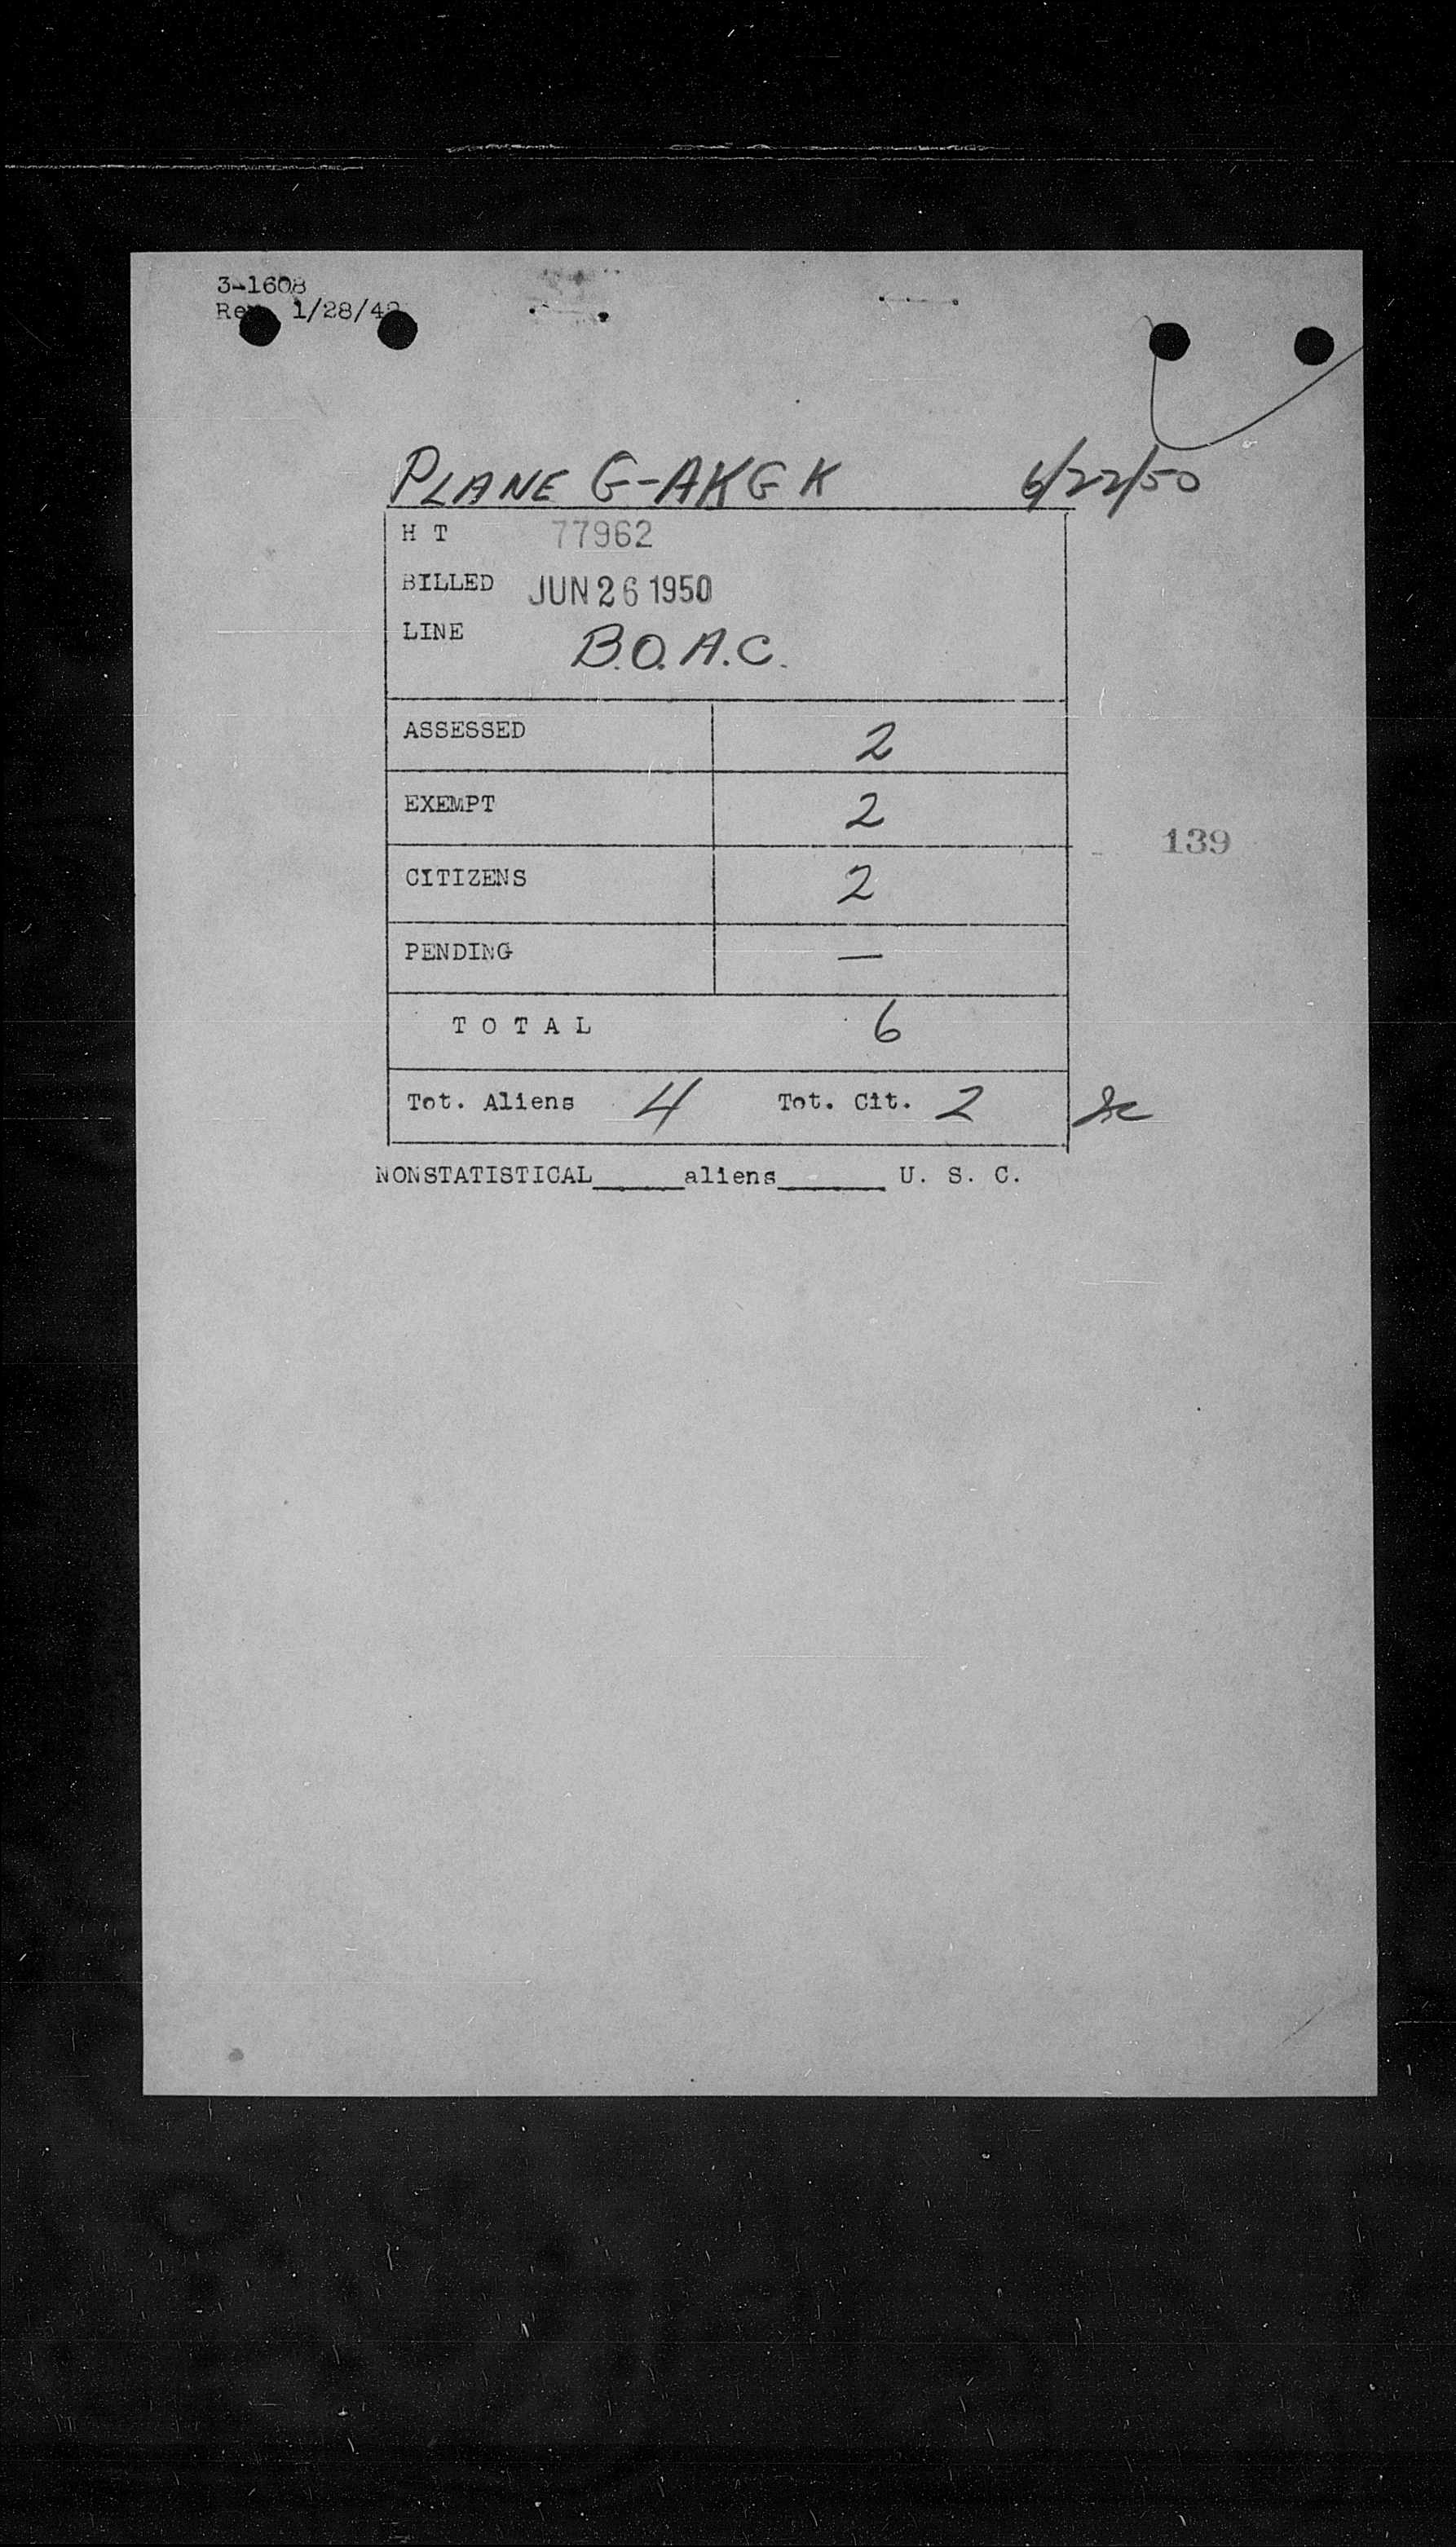 3-1608
Rev. 1/28/48
PLANE G-AKGK 6/22/50
H T 77962
BILLED JUN 26 1950
LINE B.O.A.C.
ASSESSED 2
EXEMPT 2
139
CITIZENS 2
PENDING —
TOTAL 6
Tot. Aliens 4 Tot. Cit. 2
NONSTATISTICAL_____aliens______ U. S. C.